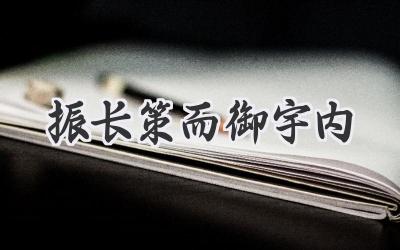 振长策而御宇内